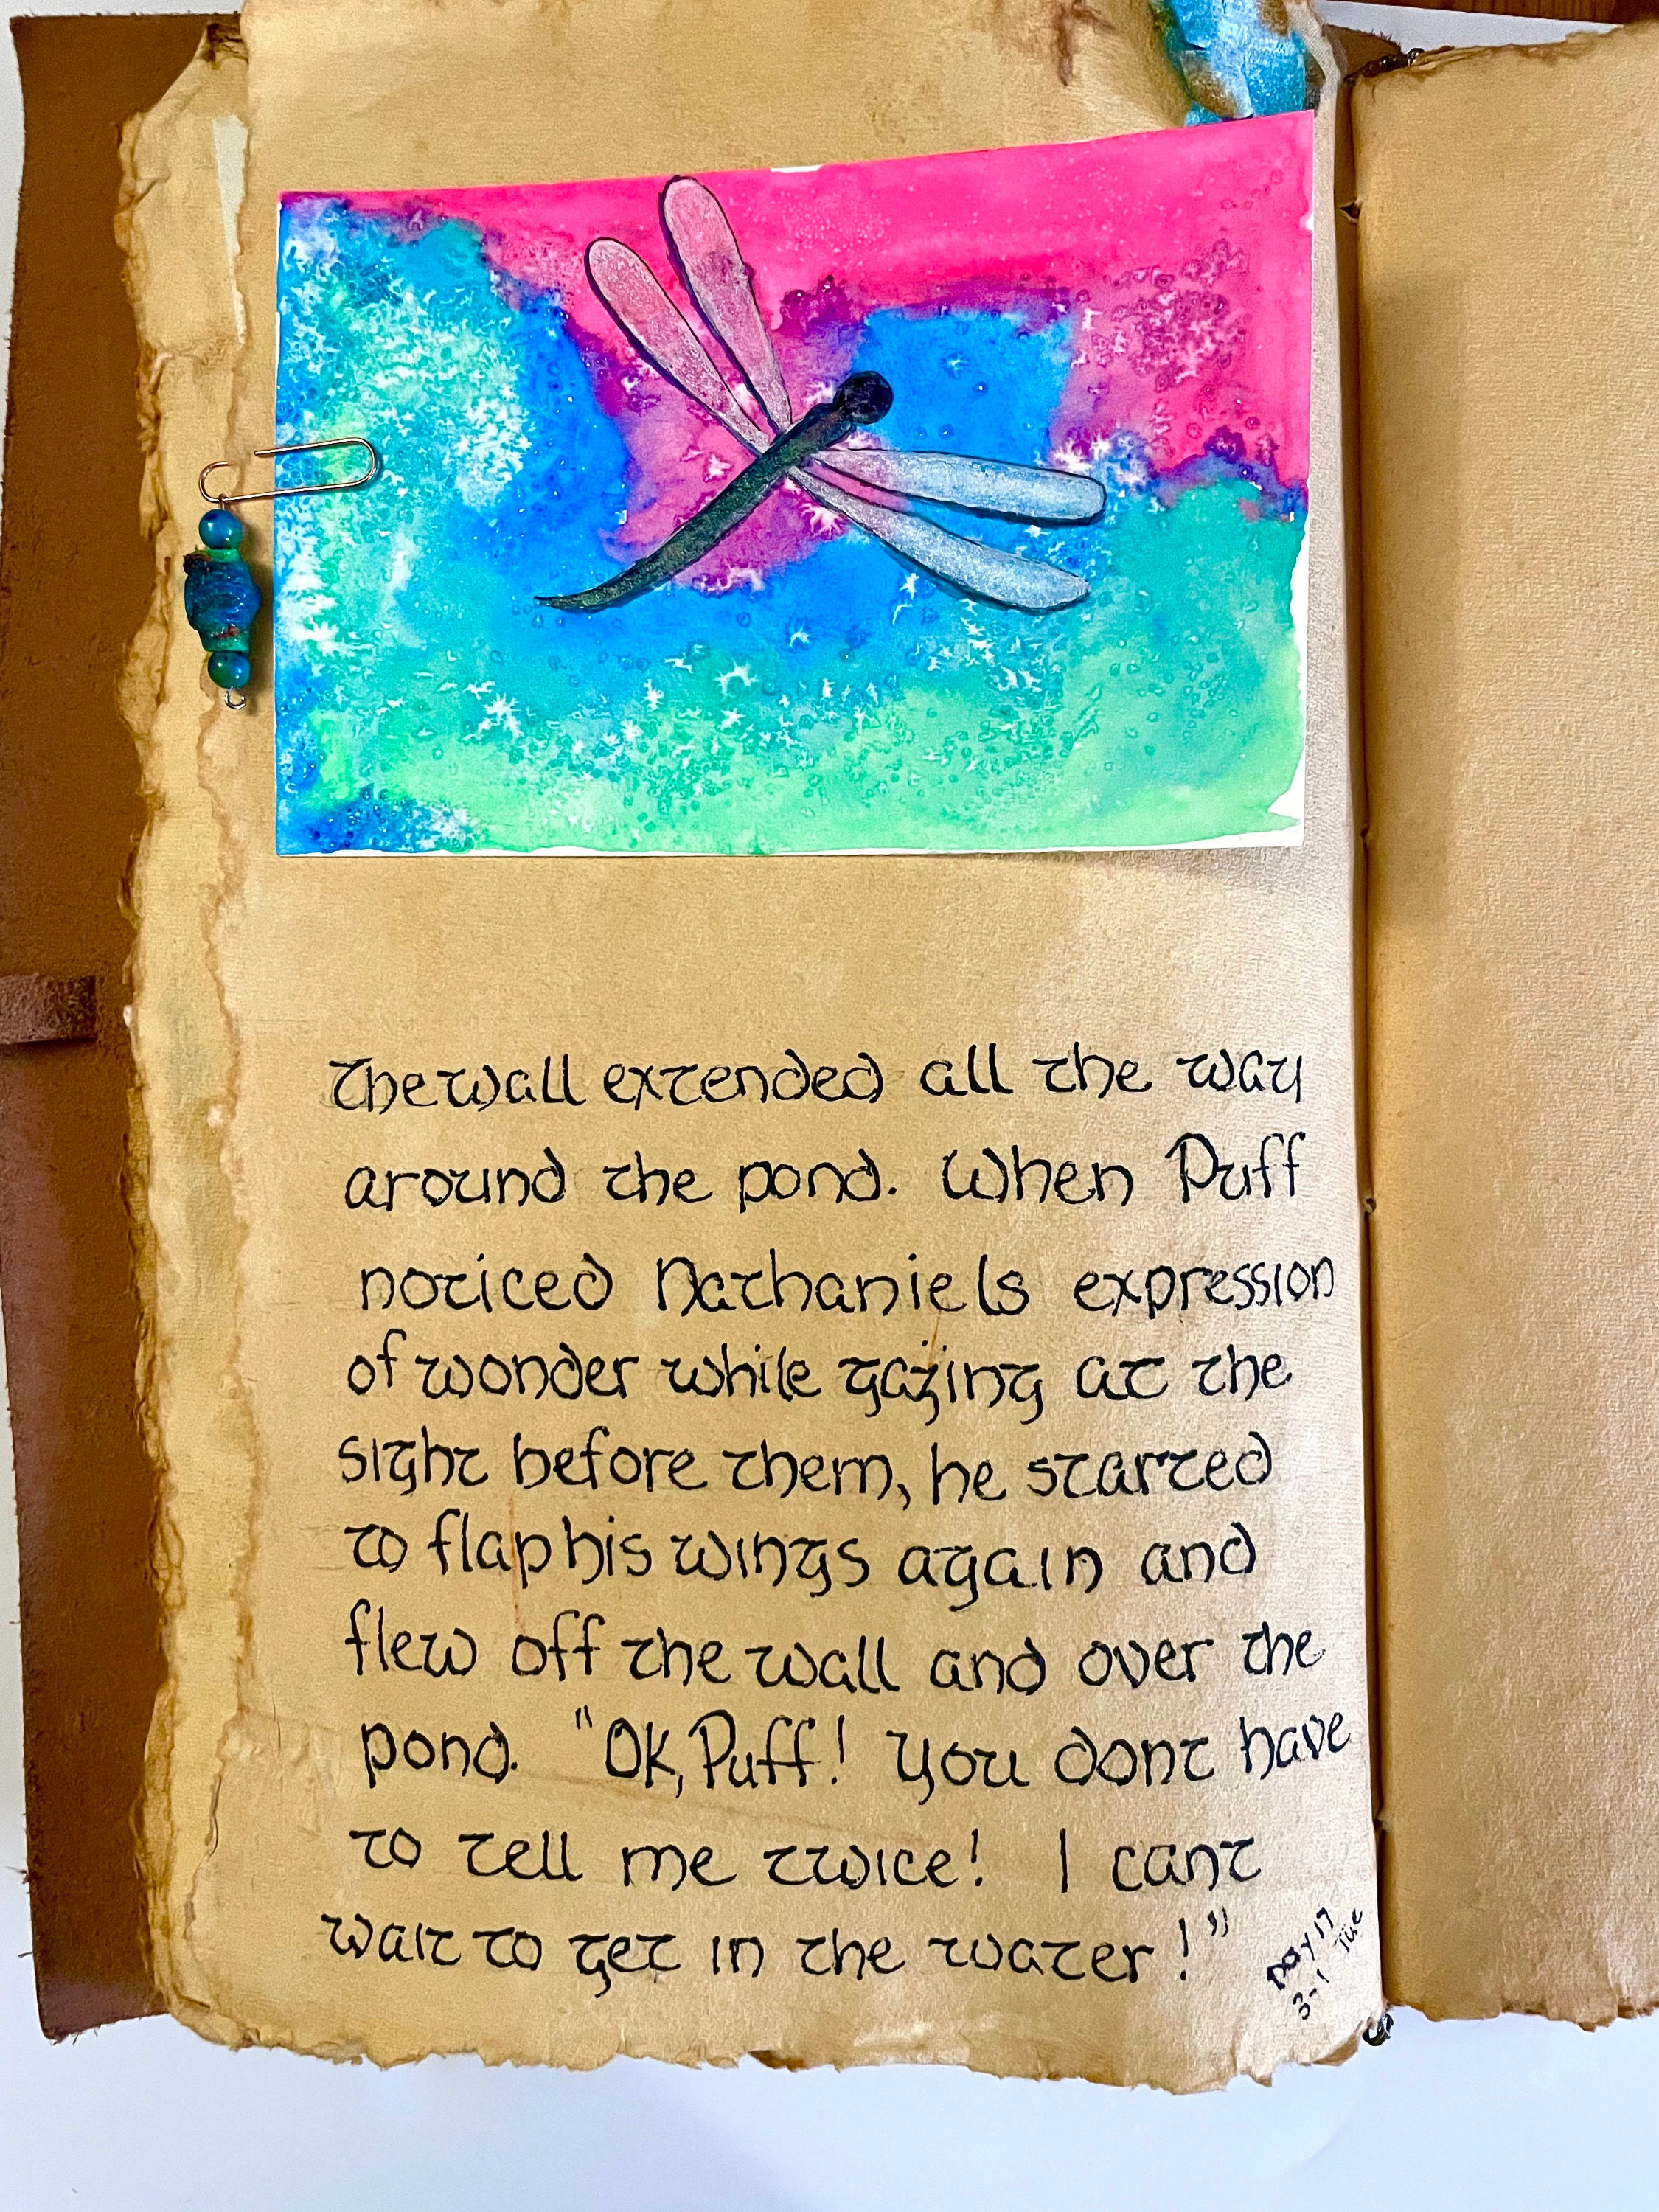 The wall extended all the way
around the pond. When Puff
noticed Nathaniels expression
of wonder while gazing at the
sight before them, he started
to flap his wings again and
flew off the wall and over the
pond. "OK, Puff! You dont have
to tell me twice! I cant
wait to get in the water!"
Day 17
3-1 Tue